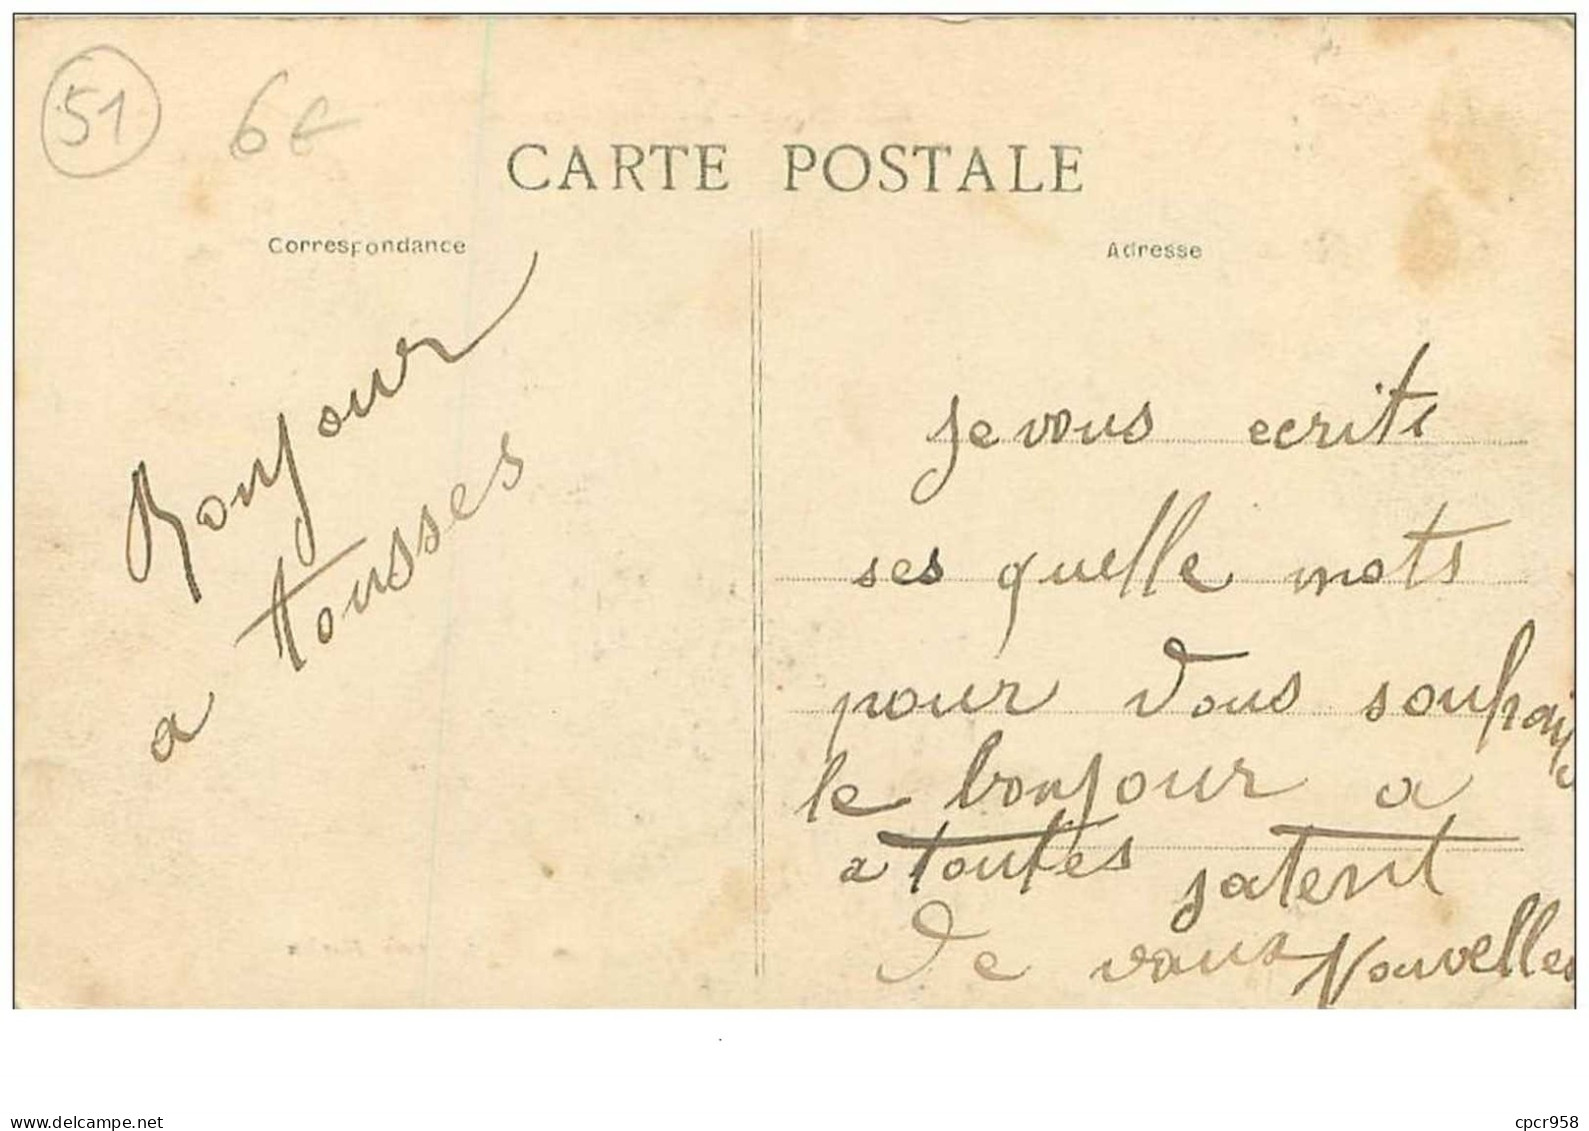 51 6€
CARTE POSTALE
Correspondance
Adresse
Bonjour
a tousses
Je vous ecrits
ses quelle mots
pour vous souhaits
le bonjour a
a toutes jatent
de vous Nouvelles
www.delcampe.net
cpcr958